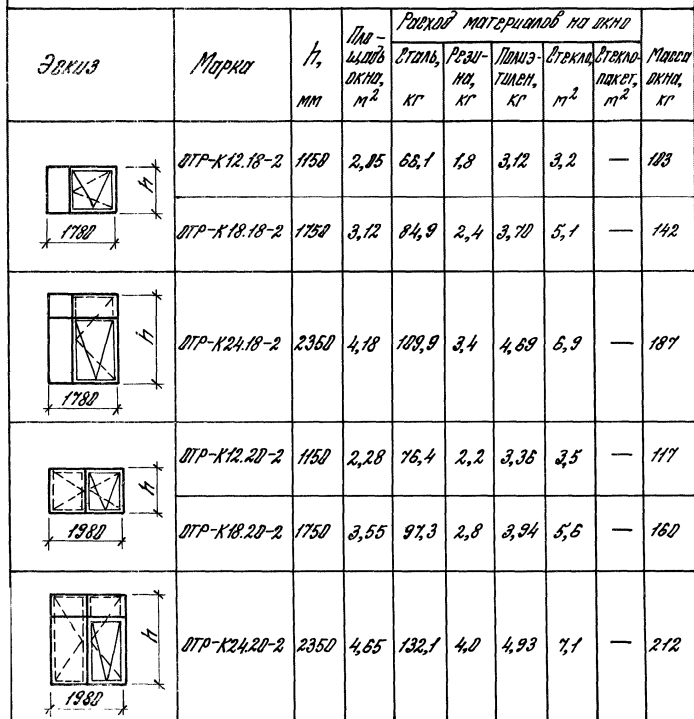 Эскиз
Марка
h, мм
Пло-
щадь
окна,
м²
Расход материалов на окно
Сталь,
кг
Рези-
на,
кг
Полиэ-
тилен,
кг
Стекло,
м²
Стекло-
пакет,
м²
Масса
окна,
кг
h
1780
ОТР-К12.18-2 1150 2,05 66,1 1,8 3,12 3,2 — 103
ОТР-К18.18-2 1750 3,12 84,9 2,4 3,70 5,1 — 142
h
1780
ОТР-К24.18-2 2350 4,18 109,9 3,4 4,69 6,9 — 187
h
1980
ОТР-К12.20-2 1150 2,28 76,4 2,2 3,36 3,5 — 117
ОТР-К18.20-2 1750 3,55 97,3 2,8 3,94 5,6 — 160
h
1980
ОТР-К24.20-2 2350 4,65 132,1 4,0 4,93 7,1 — 212